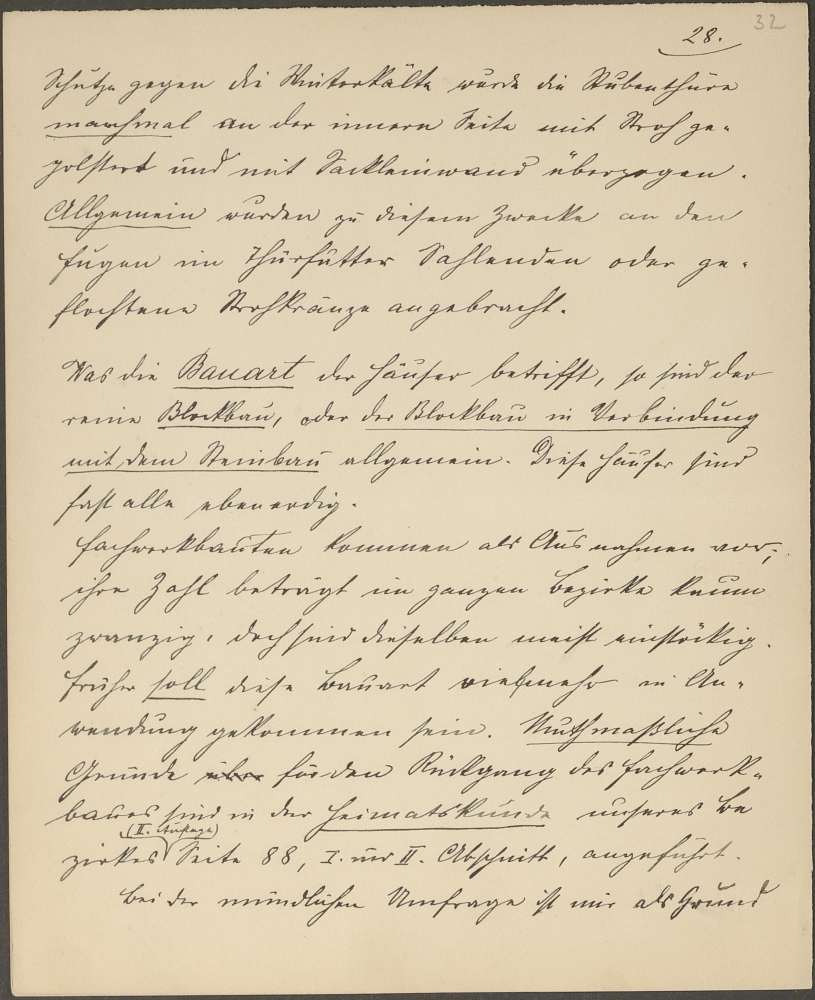 32
28.
Schutze gegen die Winterkälte wurde die Stubenthüre
manchmal an der innern Seite mit Stroh ge-
polstert und mit Sackleinwand überzogen.
Allgemein wurden zu diesem Zwecke an den
Fugen im Thürfutter Sahlenden oder ge-
flochtene Strohkränze angebracht.
Was die Bauart der Häuser betrifft, so sind der
reine Blockbau, oder der Blockbau in Verbindung
mit dem Steinbau allgemein. Diese Häuser sind
fast alle ebenerdig.
Fachwerkbauten kommen als Ausnahmen vor;
ihre Zahl beträgt im ganzen Bezirke kaum
zwanzig, doch sind dieselben meist einstöckig.
Früher soll diese Bauart vielmehr in An-
wendung gekommen sein. Muthmaßliche
Gründe für den Rückgang des Fachwerk-
baues sind in der Heimatskunde unseres Be
(II. Auflage)
zirkes Seite 88, I. und II. Abschnitt, angeführt.
Bei der mündlichen Umfrage ist mir als Grund